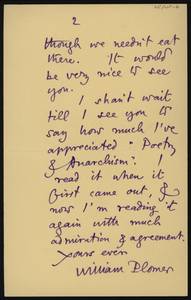 2
though we needn't eat
there. It would
be very nice to see
you.
I shan't wait
till I see you to
say how much I've
appreciated "Poetry
& Anarchism". I
read it when it
first came out, &
now I'm reading it
again with much
admiration & agreement.
Yours ever
William Plomer